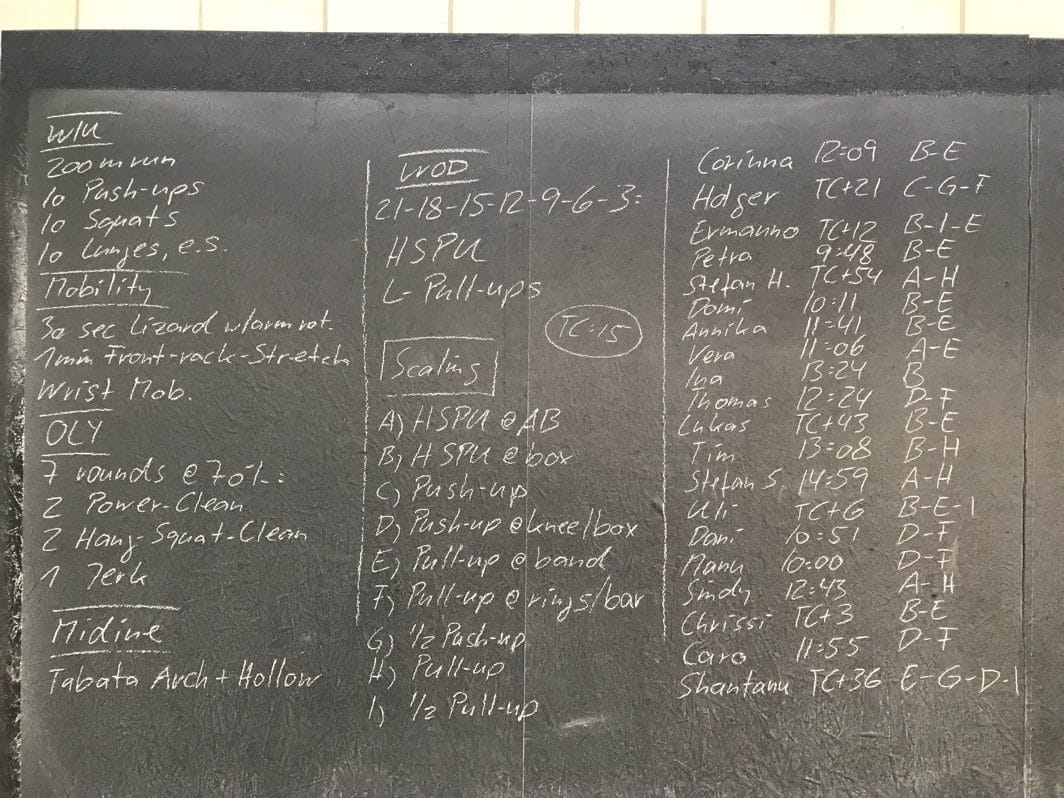 W/U
200m run
10 Push-ups
10 Squats
10 Lunges, e.s.
Mobility
30 sec Lizard w/arm rot.
1min Front-rack-Stretch
Wrist Mob.
OLY
7 rounds @ 70%:
2 Power-Clean
2 Hang-Squat-Clean
1 Jerk
Midline
Tabata Arch + Hollow
WOD
21-18-15-12-9-6-3:
HSPU
L-Pull-ups
TC:15
Scaling
A) HSPU @ AB
B) HSPU @ box
C) Push-up
D) Push-up @ knee/box
E) Pull-up @ band
F) Pull-up @ rings/bar
G) 1/2 Push-up
H) Pull-up
I) 1/2 Pull-up
Corinna 12:09 B-E
Holger TC+21 C-G-F
Ermanno TC+12 B-I-E
Petra 9:48 B-E
Stefan H. TC+54 A-H
Domi 10:11 B-E
Annika 11:41 B-E
Vera 11:06 A-E
Ina 13:24 B
Thomas 12:24 D-F
Lukas TC+43 B-E
Tim 13:08 B-H
Stefan S. 14:59 A-H
Uli TC+6 B-E-I
Dani 10:51 D-F
Manu 10:00 D-F
Sindy 12:43 A-H
Chrissi TC+3 B-E
Caro 11:55 D-F
Shantanu TC+36 E-G-D-I